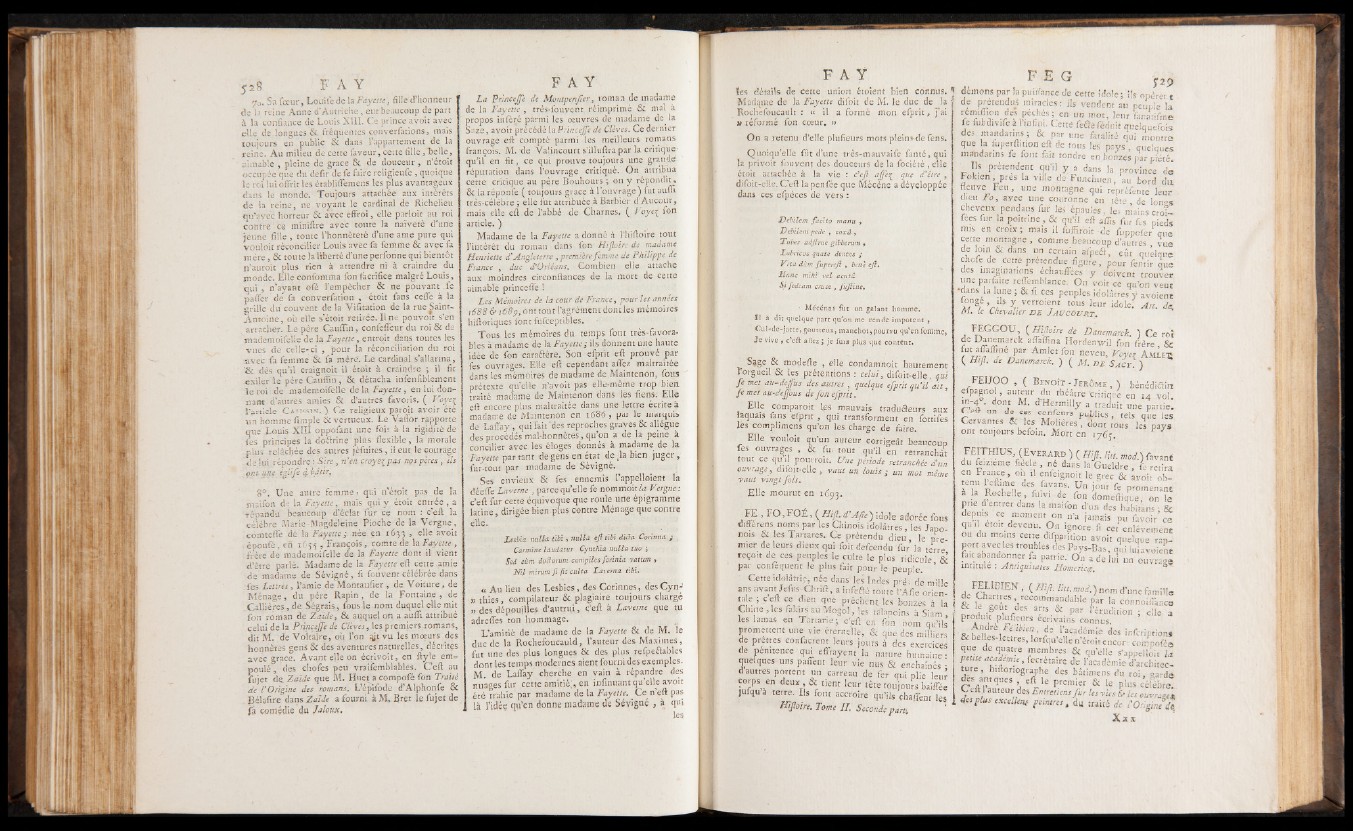 528 FAY
FAY
7o. Sa sœur, Louise de la Fayette, fille d'honneur
de la reine Anne d'Autriche, eut beaucoup de part
à la confiance de Louis XIII. Ce prince avoit avec
elle de longues & fréquentes conversations, mais
toujours en public & dans l'appartement de la
reine. Au milieu de cette faveur, cette fille, belle,
aimable, pleine de grace & de douceur, n'étoit
occupée que du desir de se faire religieuse, quoique
le roi lui offrît les établissemens les plus avantageux
dans le monde. Toujours attachée aux intérêts
de la reine, ne voyant le cardinal de Richelieu
qu'avec horreur & avec effroi, elle parloit au roi
contre ce ministre avec toute la naïveté d'une
jeune fille, toute l'honnêteté d'une ame pure qui
vouloit réconcilier Louis avec sa femme & avec sa
mère, & toute la liberté d'une personne qui bientôt
n'auroit plus rien à attendre ni à craindre du
monde. Elle consomma son sacrifice malgré Louis,
qui, n'ayant osé l'empêcher & ne pouvant se
passer de sa conversation, étoit sans cesse à la
grille du couvent de la Visitation de la rue Saint-
Antoine, où elle s'étoit retirée. Il ne pouvoit s'en
arracher. Le père Caussin, confesseur du roi & de
mademoiselle de la Fayette, entroit dans toutes les
vues de celle-ci, pour la réconciliation du roi
avec sa femme & sa mère. Le cardinal s'allarma,
& dès qu'il craignoit il étoit à craindre; il fit
exiler le père Caussin, & détacha insensiblement
le roi de mademoiselle de la Fayette, en lui don-
nant d'autres amies & d'autres favoris. ( Voyez
l'article CAUSSIN. ) Ce religieux paroît avoir été
un homme simple & vertueux. Le Vassor rapporte
que Louis XIII opposant une fois à la rigidité de
ses principes la doctrine plus flexible, la morale
plus relâchée des autres jésuites, il eut le courage
de lui répondre: Sire, n'en croyez pas nos pères, ils
ont une église à bâtir.
8°. Une autre femme, qui n'étoit pas de la
maison de la Fayette, mais qui y étoit entrée, a
répandu beaucoup d'éclat sur ce nom: c'est la
célèbre Marie-Magdeleine Pioche de la Vergne,
comtesse de la Fayette; née en 1633, elle avoit
épousé, en 1655, François, comte de la Fayette,
frère de mademoiselle de la Fayette dont il vient
d'être parlé. Madame de la Fayette est cette amie
de madame de Sévigné, si souvent célébrée dans
ses Lettres, l'amie de Montausier, de Voiture, de
Ménage, du père Rapin, de la Fontaine, de
Callières, de Ségrais, sous le nom duquel elle mit
son roman de Zaïde, & auquel on a aussi attribué
celui de la Princesse de Clèves, les premiers romans,
dit M. de Voltaire, où l'on ait vu les mœurs des
honnêtes gens & des aventures naturelles, décrites
avec grace. Avant elle on écrivoit, en style em-
poulé, des choses peu vraisemblables. C'est au
sujet de Zaïde que M. Huet a composé son Traité
de l'Origine des romans. L'épisode d'Alphonse &
Bélasire dans Zaïde a fourni à M. Bret le sujet de
sa comédie du Jaloux.
La Princesse de Montpensier, roman de madame
de la Fayette, très-souvent réimprimé & mal à
propos inséré parmi les œuvres de madame de la
Suze, avoit précédé la Princesse de Clèves. Ce dernier
ouvrage est compté parmi les meilleurs romans
françois. M. de Valincourt s'illustra par la critique
qu'il en fit, ce qui prouve toujours une grande
réputation dans l'ouvrage critiqué. On attribua
cette critique au père Bouhours; on y répondit,
& la réponse ( toujours grace à l'ouvrage ) fut aussi
très-célèbre; elle fut attribuée à Barbier d'Aucour,
mais elle est de l'abbé de Charnes. ( Voyez son
article. )
Madame de la Fayette a donné à l'histoire tout
l'intérêt du roman dans son Histoire de madame
Henriette d'Angleterre, première femme de Philippe de
France, duc d'Orléans. Combien elle attache
aux moindres circonstances de la mort de cette
aimable princesse!
Les Mémoires de la cour de France, pour les années
1688 & 1689, ont tout l'agrément dont les mémoires
historiques sont susceptibles.
Tous les mémoires du temps sont très-favora-
bles à madame de la Fayette; ils donnent une haute
idée de son caractère. Son esprit est prouvé par
ses ouvrages. Elle est cependant assez maltraitée
dans les mémoires de madame de Maintenon, sous
prétexte qu'elle n'avoit pas elle-même trop bien
traité madame de Maintenon dans les siens. Elle
est encore plus maltraitée dans une lettre écrite à
madame de Maintenon en 1686, par le marquis
de Lassay, qui fait des reproches graves & allègue
des procédés mal-honnêtes, qu'on a de la peine à
concilier avec les éloges donnés à madame de la
Fayette par tant de gens en état de la bien juger,
sur-tout par madame de Sévigné.
Ses envieux & ses ennemis l'appelloient la
déesse Laverne, parce qu'elle se nommoit la Vergne:
c'est sur cette équivoque que roule une épigramme
latine, dirigée bien plus contre Ménage que contre
elle.
Lesbia nulla tibi, nulla est tibi dicta Corinna;
Carmine laudatur Cynthia nulla tuo;
Sed cùm doctorum compiles scrinia vatum,
Nil mirum si sit culta Laverna tibi.
« Au lieu des Lesbies, des Corinnes, des Cyn-
» thies, compilateur & plagiaire toujours chargé
» des dépouilles d'autrui, c'est à Laverne que tu
adresses ton hommage.
L'amitié de madame de la Fayette & de M. le
duc de la Rochefoucauld, l'auteur des Maximes,
fut une des plus longues & des plus respectables
dont les temps modernes aient fourni des exemples.
M. de Lassay cherche en vain à répandre des
nuages sur cette amitié, en insinuant qu'elle avoit
été trahie par madame de la Fayette. Ce n'est pas
là l'idée qu'en donne madame de Sévigné, à qui
les
FAY
FEG 529
les détails de cette union étoient bien connus.
Madame de la Fayette disoit de M. le duc de la
Rochefoucault: « il a formé mon esprit, j'ai
» réformé son cœur. »
On a retenu d'elle plusieurs mots pleins de sens.
Quoiqu'elle fût d'une très-mauvaise santé, qui
la privoit souvent des douceurs de la société, elle
étoit attachée à la vie: c'est assez que d'être,
disoit-elle. C'est la pensée que Mécène a développée
dans ces espèces de vers:
Debilem facito manu,
Debilem pede, coxâ,
Tuber adstrue gibberum,
Lubricos quate dentes;
Vita dùm superest, benè est.
Hanc mihi vel acutâ
Si sedeam cruce, sustine.
Mécénas fut un galant homme.
Il a dit quelque part qu'on me rende impotent,
Cul-de-jatte, goutteux, manchot, pourvu qu'en somme,
Je vive, c'est assez; je suis plus que content.
Sage & modeste, elle condamnoit hautement
l'orgueil & les prétentions: celui, disoit-elle, qui
se met au-dessus des autres, quelque esprit qu'il ait,
se met au-dessous de son esprit.
Elle comparoit les mauvais traducteurs aux
laquais sans esprit, qui transforment en sottises
les complimens qu'on les charge de faire.
Elle vouloit qu'un auteur corrigeât beaucoup
ses ouvrages, & sur tout qu'il en retranchât
tout ce qu'il pourroit. Une période retranchée d'un
ouvrage, disoit-elle, vaut un louis; un mot même
vaut vingt sols.
Elle mourut en 1693.
FE, FO, FOÉ, ( Hist. d'Asie ) idole adorée sous
différens noms par les Chinois idolâtres, les Japo-
nois & les Tartares. Ce prétendu dieu, le pre-
mier de leurs dieux qui soit descendu sur la terre,
reçoit de ces peuples le culte le plus ridicule, &
par conséquent le plus fait pour le peuple.
Cette idolâtrie, née dans les Indes près de mille
ans avant Jesus-Christ, a infecté toute l'Asie orien-
tale; c'est ce dieu que prêchent les bonzes à la
Chine, les fakirs au Mogol, les talapoins à Siam,
les lamas en Tartarie; c'est en son nom qu'ils
promettent une vie éternelle, & que des milliers
de prêtres consacrent leurs jours à des exercices
de pénitence qui effrayent la nature humaine:
quelques-uns passent leur vie nus & enchaînés;
d'autres portent un carreau de fer qui plie leur
corps en deux, & tient leur tête toujours baissée
jusqu'à terre. Ils font accroire qu'ils chassent les
Histoire. Tome II. Seconde part.
démons par la puissance de cette idole; ils opèrent
de prétendus miracles: ils vendent au peuple la
rémission des péchés; en un mot, leur fanatisme
se subdivise à l'infini. Cette secte séduit quelquefois
des mandarins; & par une fatalité qui montre
que la superstition est de tous les pays, quelques
mandarins se sont fait tondre en bonzes par piété.
Ils prétendent qu'il y a dans la province de
Fokien, près la ville de Funchuen, au bord du
fleuve Feu, une montagne qui représente leur
dieu Fo, avec une couronne en tête, de longs
cheveux pendans sur les épaules, les mains croi-
sées sur la poitrine, & qu'il est assis sur ses pieds
mis en croix; mais il suffiroit de supposer que
cette montagne, comme beaucoup d'autres, vue
de loin & dans un certain aspect, eût quelque
chose de cette prétendue figure, pour sentir que
des imaginations échauffées y doivent trouver
une parfaite ressemblance. On voit ce qu'on veut
dans la lune; & si ces peuples idolâtres y avoient
songé, ils y verroient tous leur idole. Art. de
M. le Chevalier DE JAUCOURT.
FEGGOU, ( Histoire de Danemarck. ) Ce roi
de Danemarck assassina Hordenwil son frère, &
fut assassiné par Amlet son neveu. Voyez AMLET
( Hist. de Danemarck. ) ( M. DE SACY. )
FEIJOO, ( BENOÎT-JERÔME, ) bénédictin
espagnol, auteur du théâtre critique en 14 vol.
in-4°. dont M. d'Hermilly a traduit une partie.
C'est un de ces censeurs publics, tels que les
Cervantes & les Molières, dont tous les pays
ont toujours besoin. Mort en 1765.
FEITHIUS, (EVERARD) ( Hist. litt. mod.) savant
du seizième siècle, né dans la Gueldre, se retira
en France, où il enseignoit le grec & avoit ob-
tenu l'estime des savans. Un jour se promenant
à la Rochelle, suivi de son domestique, on le
prie d'entrer dans la maison d'un des habitans; &
depuis ce moment on n'a jamais pu savoir ce
qu'il étoit devenu. On ignore si cet enlèvement
ou du moins cette disparition avoit quelque rap-
port avec les troubles des Pays-Bas, qui lui avoient
fait abandonner sa patrie. On a de lui un ouvrage
intitulé: Antiquitates Homericæ.
FELIBIEN, ( Hist. litt. mod.) nom d'une famille
de Chartres, recommandable par la connoissance
& le goût des arts & par l'érudition; elle a
produit plusieurs écrivains connus.
André Félibien, de l'académie des inscriptions
& belles-lettres, lorsqu'elle n'étoit encor composée
que de quatre membres & qu'elle s'appelloit la
petite académie, secrétaire de l'académie d'architec-
ture, historiographe des bâtimens du roi, garde
des antiques, est le premier & le plus célèbre.
C'est l'auteur des Entretiens sur les vies & les ouvrages
des plus excellens peintres, du traité de l'Origine de
Xxx